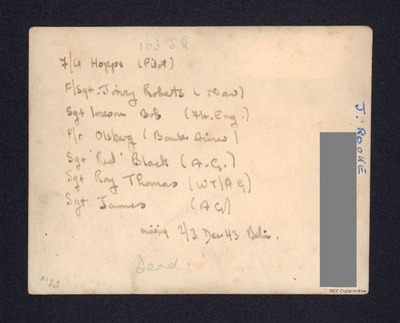 103 SQ
F/Lt Hopps (Pilot)
F/Sgt. Jerry Roberts (Nav)
Sgt Bob (Flt. Eng.)
P/O Olsberg (Bomb Aimer)
Sgt 'Red' Black (A.G.)
Sgt Roy Thomas (WT/AG)
Sgt James (AG)
missing 2/3 Dec 43
Dead
J. ROOKE
IBCC Digital Archive